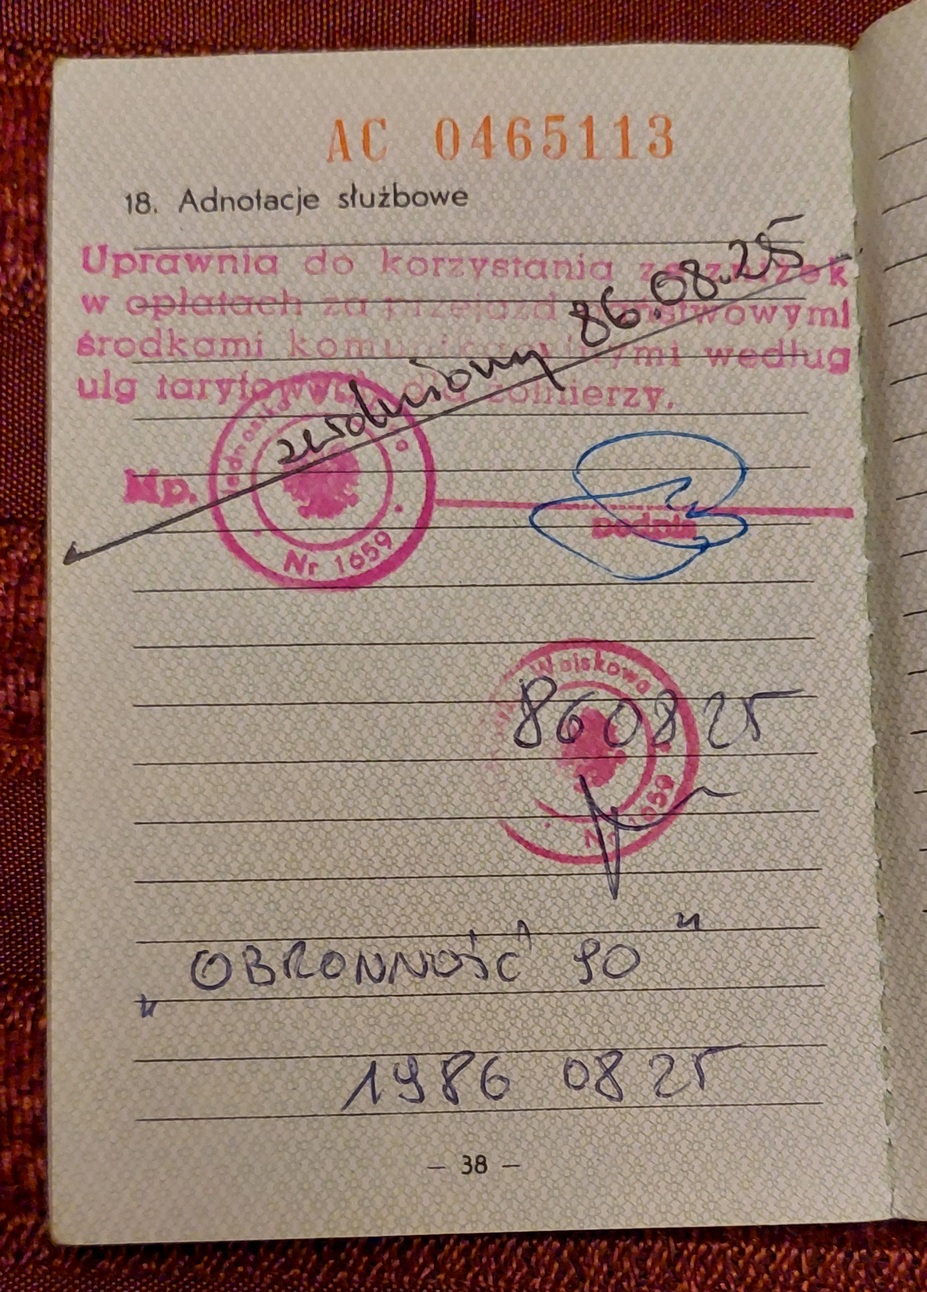 AC 0465113
18. Adnotacje służbowe
Uprawnia do korzystania ze zniżek
w opłatach za przejazd państwowymi
środkami komunikacyjnymi według
ulg taryfowych dla żołnierzy.
zwolniony 86.08.25
Mp.
Nr 1659
podpis
Wojskowa
Nr 1659
860825
„OBRONNOŚĆ 90"
1986 08 25
— 38 —